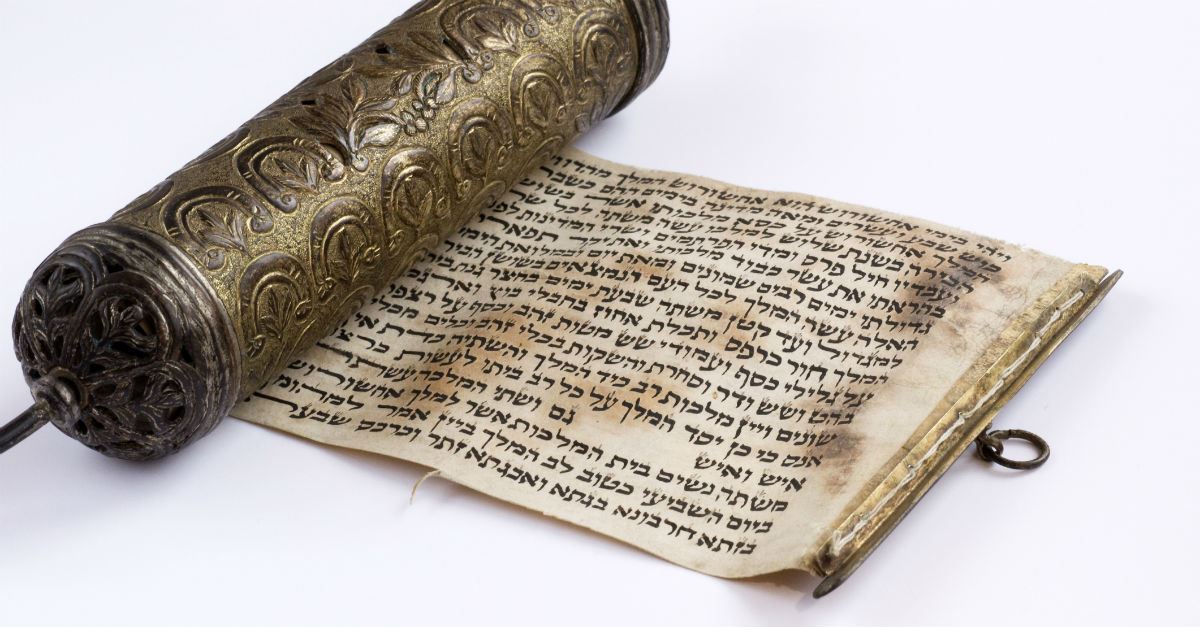 ויהי בימי אחשורוש הוא אחשורוש המלך מהדו
כוש שבע ועשרים ומאה מדינה בימים ההם כשבת
המלך אחשורוש על כסא מלכותו אשר בשוש
הבירה בשנת שלוש למלכו עשה משתה לכל שר
ועבדיו חיל פרס ומדי הפרתמים ושרי המדינות לפנ
בהראתו את עשר כבוד מלכותו ואת יקר תפאר
גדולתו ימים רבים שמונים ומאת יום ובמלואת הימי
האלה עשה המלך לכל העם הנמצאים בשושן הביר
למגדול ועד קטן משתה שבעת ימים בחצר גנת
המלך חור כרפס ותכלת אחוז בחבלי בוץואר
על גלילי כסף ועמודי שש מטות זהב וכסף על רצפ
בהט ושש ודר וסחרת והשקות בכלי זהב וכלים מכלי
שונים ויין מלכות רב כיד המלך והשתיה כדת אי
אנס כי כן יסד המלך על כל רב ביתו לעשות כרצ
איש ואיש גם ושתי המלכה עשת
משתה נשים בית המלכות אשר למלך אחשורוש
ביום השביעי כטוב לב המלך ביין אמר למהומ
בזתא חרבונא בגתא ואבגתא זתר וכרכס שבעת